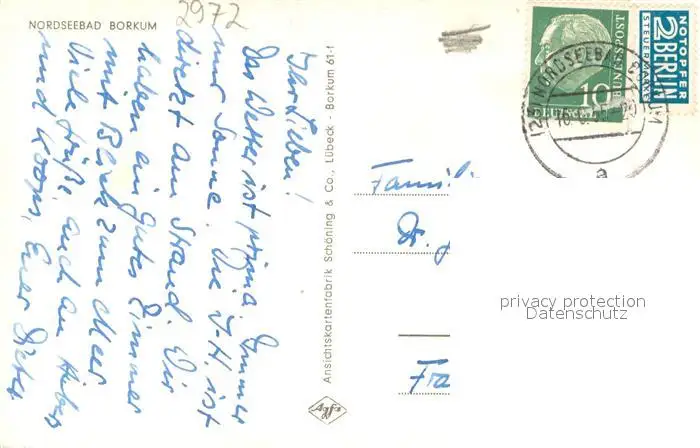 NORDSEEBAD BORKUM
2972
Ihr Lieben!
Das Wetter ist prima. Immer
nur Sonne. Die J-H. ist
direkt am Strand. Wir
haben ein gutes Zimmer
mit Blick zum Meer
Viele Grüße, auch an
und Koops, Euer Dieter
Ansichtskartenfabrik Schöning & Co., Lübeck - Borkum 61-1
Agfa
NOTOPFER
2 BERLIN
STEUERMARKE
BUNDESPOST
10
DEUTSCHE
NORDSEEBAD BORKUM
a
Famili
Dr.
Fra
privacy protection
Datenschutz